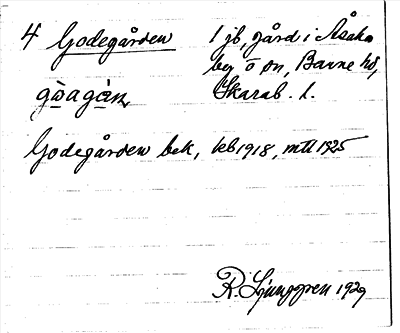 4 Godegården 1 jb, gård i Åsaka
by o sn, Barne hd,
gòagàn, Skarab. l.
Godegården bek, kb 1918, mtl 1925
R. Ljunggren 1929